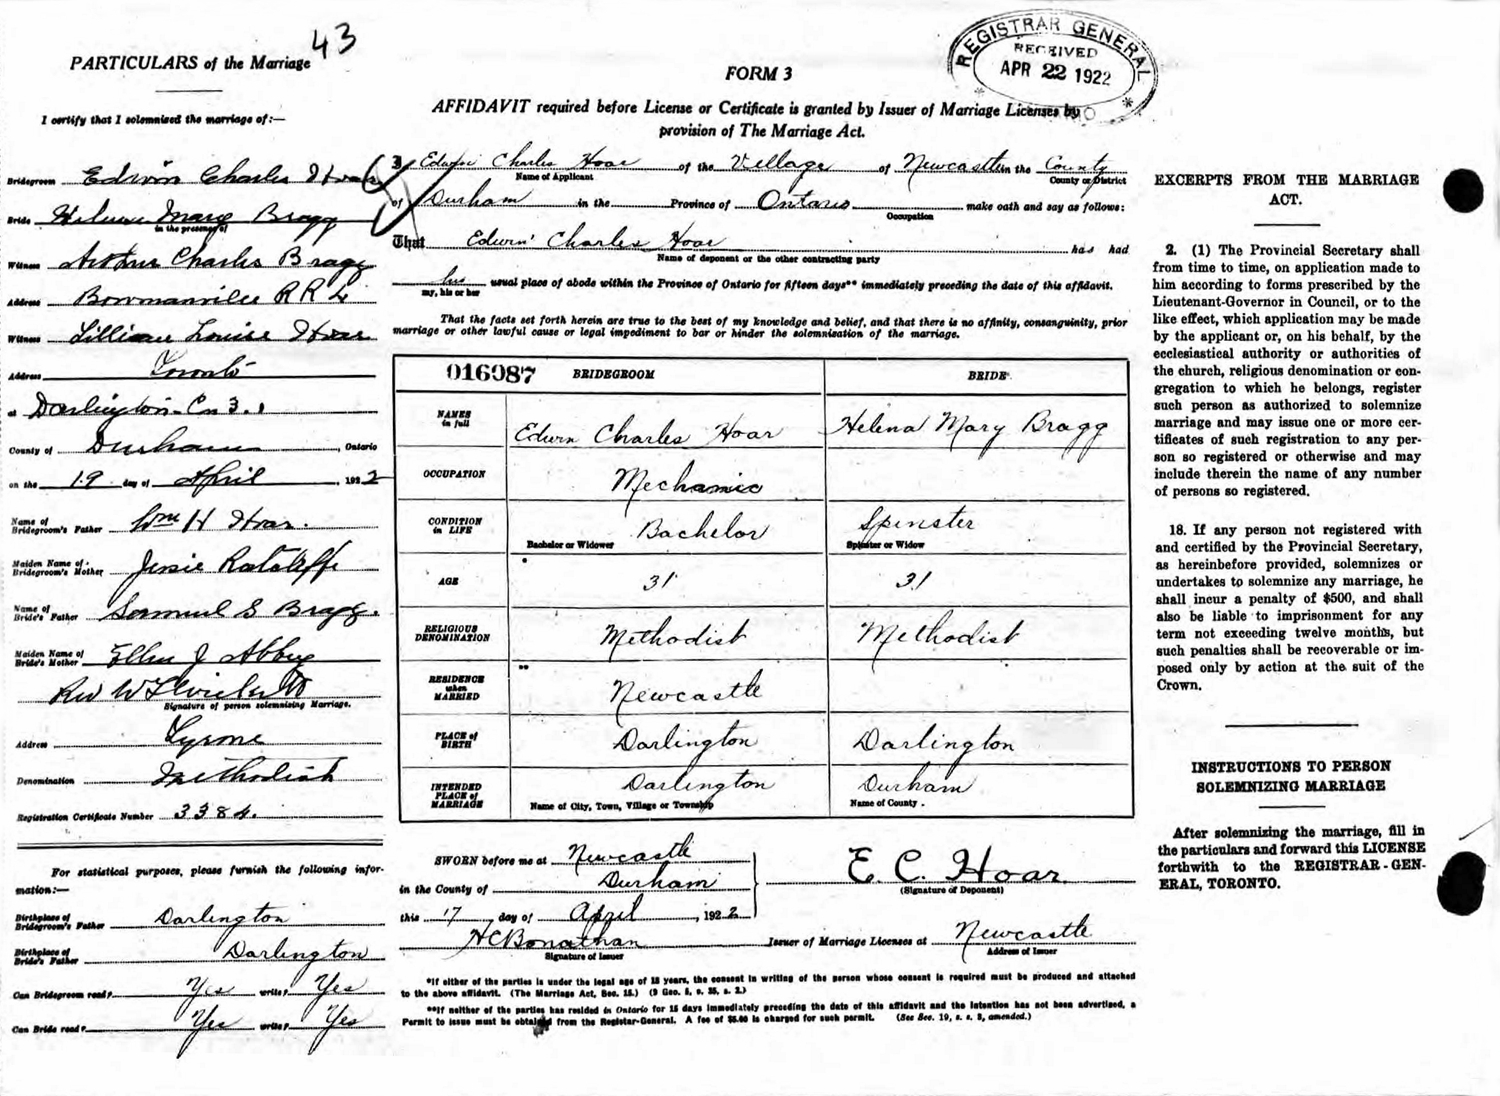 43
PARTICULARS of the Marriage
I certify that I solemnized the marriage of:—
Bridegroom Edwin Charles Hoar
Bride Helena Mary Bragg
in the presence of
Witness Arthur Charles Bragg
Address Bowmanville R R
Witness Lillian Louise Hoar
Address Toronto
at Darlington Con 3.
County of Durham, Ontario
on the 19 day of April, 1922
Name of
Bridegroom's Father Wm H Hoar.
Maiden Name of
Bridegroom's Mother Jessie Ratcliffe
Name of
Bride's Father Samuel S Bragg.
Maiden Name of
Bride's Mother Ellen J Abbey
Rev W
Signature of person solemnizing Marriage.
Address Tyrone
Denomination Methodist
Registration Certificate Number 3384.
For statistical purposes, please furnish the following infor-
mation:—
Birthplace of
Bridegroom's Father Darlington
Birthplace of
Bride's Father Darlington
Can Bridegroom read? Yes write? Yes
Can Bride read? Yes write? Yes
REGISTRAR GENERAL
RECEIVED
APR 22 1922
FORM 3
AFFIDAVIT required before License or Certificate is granted by Issuer of Marriage Licenses by
provision of The Marriage Act.
I, Edwin Charles Hoar of the Village of Newcastle in the County
Name of Applicant County or District
of Durham in the Province of Ontario make oath and say as follows:
Occupation
That Edwin Charles Hoar has had
Name of deponent or the other contracting party
his usual place of abode within the Province of Ontario for fifteen days** immediately preceding the date of this affidavit.
my, his or her
That the facts set forth herein are true to the best of my knowledge and belief, and that there is no affinity, consanguinity, prior
marriage or other lawful cause or legal impediment to bar or hinder the solemnisation of the marriage.
016987 BRIDEGROOM BRIDE
NAMES
in full Edwin Charles Hoar Helena Mary Bragg
OCCUPATION Mechanic
CONDITION
in LIFE Bachelor Spinster
Bachelor or Widower Spinster or Widow
AGE 31 31
RELIGIOUS
DENOMINATION Methodist Methodist
**
RESIDENCE
when
MARRIED Newcastle
PLACE of
BIRTH Darlington Darlington
INTENDED
PLACE of
MARRIAGE Darlington Durham
Name of City, Town, Village or Township Name of County.
SWORN before me at Newcastle
in the County of Durham
this 17 day of April, 1922
HC Bonathan
Signature of Issuer
E. C. Hoar
(Signature of Deponent)
Issuer of Marriage Licenses at Newcastle
Address of Issuer
*If either of the parties is under the legal age of 18 years, the consent in writing of the person whose consent is required must be produced and attached
to the above affidavit. (The Marriage Act, Sec. 15.) (9 Geo. 5, c. 35, s. 2.)
**If neither of the parties has resided in Ontario for 15 days immediately preceding the date of this affidavit and the intention has not been advertised, a
Permit to issue must be obtained from the Registar-General. A fee of $5.00 is charged for such permit. (See Sec. 19, s. s. 3, amended.)
EXCERPTS FROM THE MARRIAGE
ACT.
2. (1) The Provincial Secretary shall
from time to time, on application made to
him according to forms prescribed by the
Lieutenant-Governor in Council, or to the
like effect, which application may be made
by the applicant or, on his behalf, by the
ecclesiastical authority or authorities of
the church, religious denomination or con-
gregation to which he belongs, register
such person as authorized to solemnize
marriage and may issue one or more cer-
tificates of such registration to any per-
son so registered or otherwise and may
include therein the name of any number
of persons so registered.
18. If any person not registered with
and certified by the Provincial Secretary,
as hereinbefore provided, solemnizes or
undertakes to solemnize any marriage, he
shall incur a penalty of $500, and shall
also be liable to imprisonment for any
term not exceeding twelve months, but
such penalties shall be recoverable or im-
posed only by action at the suit of the
Crown.
INSTRUCTIONS TO PERSON
SOLEMNIZING MARRIAGE
After solemnizing the marriage, fill in
the particulars and forward this LICENSE
forthwith to the REGISTRAR-GEN-
ERAL, TORONTO.